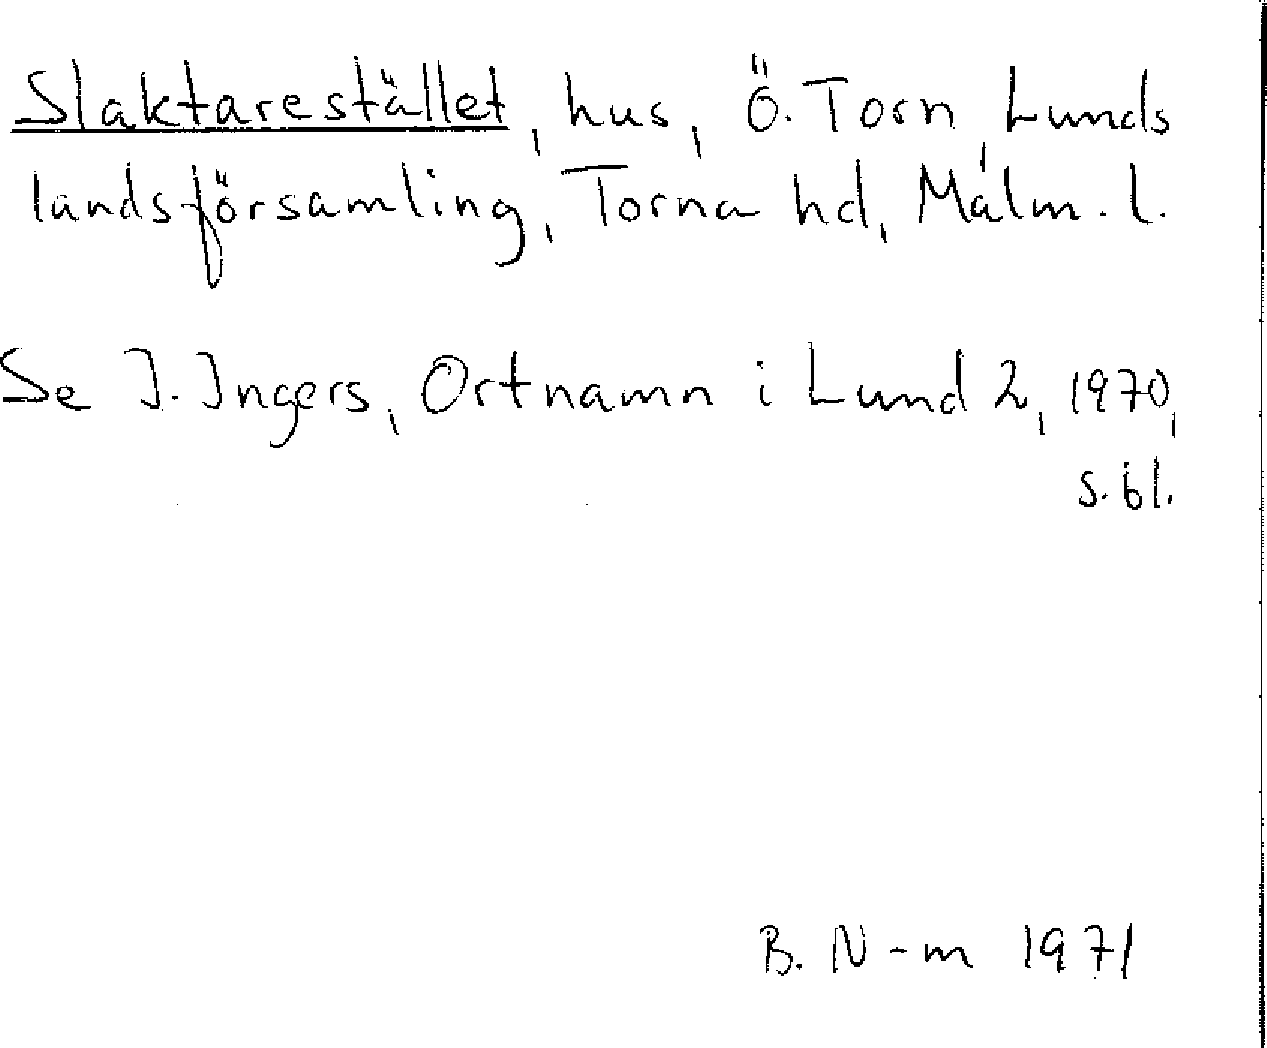 Slaktarestället, hus, Ö. Torn, Lunds
landsförsamling, Torna hd, Malm. l.
Se I. Ingers, Ortnamn i Lund 2, 1970,
s. 61.
B. N-m 1971